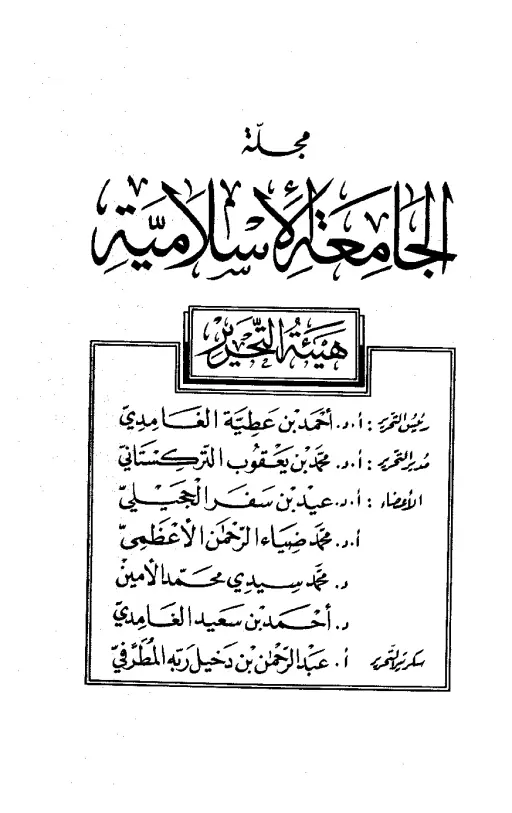 مجلّة
الجَامِعَةِ الإِسْلامِيَّةِ
هَيْئَةُ التَّحْرِيرِ
رئيس التحرير : أ.د. أحْمَد بْن عَطِيَّة الغَامِدِيّ
مدير التحرير : أ.د. محمَّد بْن يَعْقُوب التّركِسْتَانيّ
الأعضاء : أ.د. عِيْد بْن سَفَر الحُجَيْليّ
أ.د. محمَّد ضِيَاء الرَّحْمٰن الأعْظَمِيّ
د. محمَّد سِيدِي محمَّد الأمِين
د. أحْمَد بْن سَعِيد الغَامِدِيّ
سكرتير التَّحرير أ. عَبْد الرَّحْمٰن بْن دَخيل ربّه المُطَرَّفيّ